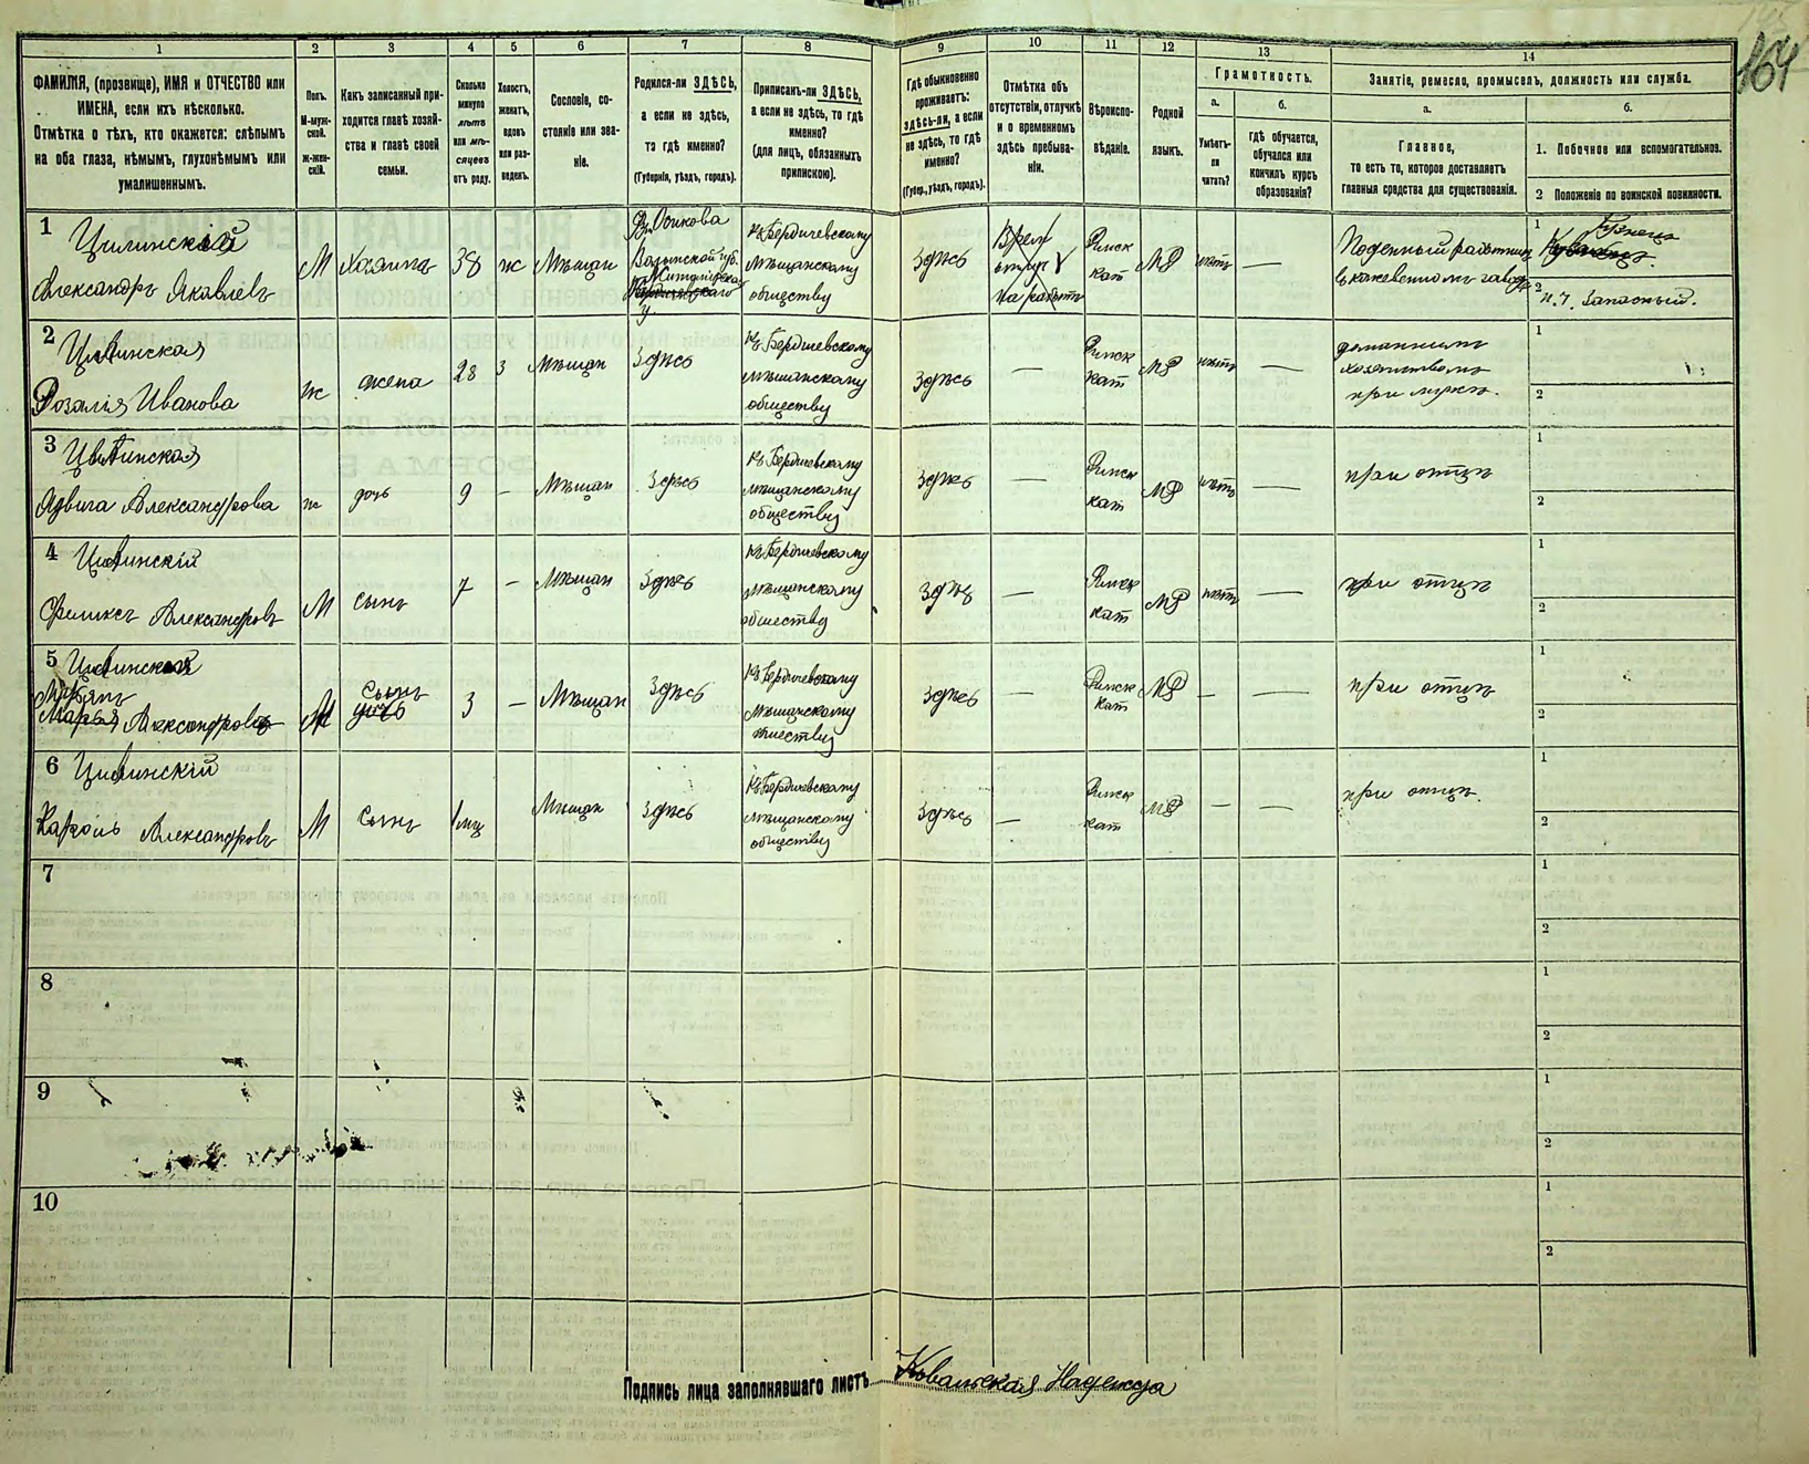 164
1 2 3 4 5 6 7 8 9 10 11 12 13 14
ФАМИЛІЯ, (прозвище), ИМЯ и ОТЧЕСТВО или
ИМЕНА, если ихъ нѣсколько.
Отмѣтка о тѣхъ, кто окажется: слѣпымъ
на оба глаза, нѣмымъ, глухонѣмымъ или
умалишеннымъ.
Полъ.
М-муж-
ской.
ж-жен-
скій.
Какъ записанный при-
ходится главѣ хозяй-
ства и главѣ своей
семьи.
Сколько
минуло
лѣтъ
или мѣ-
сяцевъ
отъ роду.
Холостъ,
женатъ,
вдовъ
или раз-
веденъ.
Сословіе, со-
стояніе или зва-
ніе.
Родился-ли ЗДѢСЬ,
а если не здѣсь,
то гдѣ именно?
(Губернія, уѣздъ, городъ).
Приписанъ-ли ЗДѢСЬ,
а если не здѣсь, то гдѣ
именно?
(для лицъ, обязанныхъ
припискою).
Гдѣ обыкновенно
проживаетъ:
здѣсь-ли, а если
не здѣсь, то гдѣ
именно?
(Губер., уѣздъ, городъ).
Отмѣтка объ
отсутствіи, отлучкѣ
и о временномъ
здѣсь пребыва-
ніи.
Вѣроиспо-
вѣданіе.
Родной
языкъ.
Грамотность.
а.
Умѣетъ-
ли
читать?
б.
гдѣ обучается,
обучался или
кончилъ курсъ
образованія?
Занятіе, ремесло, промыселъ, должность или служба.
а.
Главное,
то есть то, которое доставляетъ
главныя средства для существованія.
б.
1. Побочное или вспомогательное.
2 Положеніе по воинской повинности.
1 Цилинскій
Александръ Яковлевъ
М Хозяинъ 38 ж Мѣщан
Волынской губ.
къ Бердичевскому
мѣщанскому
обществу
здѣсь
Врем
отлуч
на работы
Римск
кат
нѣтъ —
Поденный работник
въ кожевенномъ заводѣ
1 Кузнецъ
2 н. ч. Запасный.
2
Розалія Иванова
ж жена 28 з Мѣщан здѣсь
къ Бердичевскому
мѣщанскому
обществу
здѣсь —
Римск
кат
нѣтъ —
домашнимъ
хозяйствомъ
при мужѣ.
1
2
3
Ядвига Александрова
ж дочь 9 — Мѣщан здѣсь
къ Бердичевскому
мѣщанскому
обществу
здѣсь —
Римск
кат
нѣтъ —
при отцѣ
1
2
4
Феликсъ Александровъ
М сынъ 7 — Мѣщан здѣсь
къ Бердичевскому
мѣщанскому
обществу
здѣсь —
Римск
кат
нѣтъ —
при отцѣ
1
2
5
Марья Александрова
М сынъ
дочь
3 — Мѣщан здѣсь
къ Бердичевскому
мѣщанскому
обществу
здѣсь —
Римск
кат
— —
при отцѣ
1
2
6
Кароль Александровъ
М Сынъ 1 мц Мѣщан здѣсь
къ Бердичевскому
мѣщанскому
обществу
здѣсь —
Римск
кат
— —
при отцѣ.
1
2
7
1
2
8
1
2
9
1
2
10
1
2
Подпись лица заполнявшаго листъ Ковальская Надежда